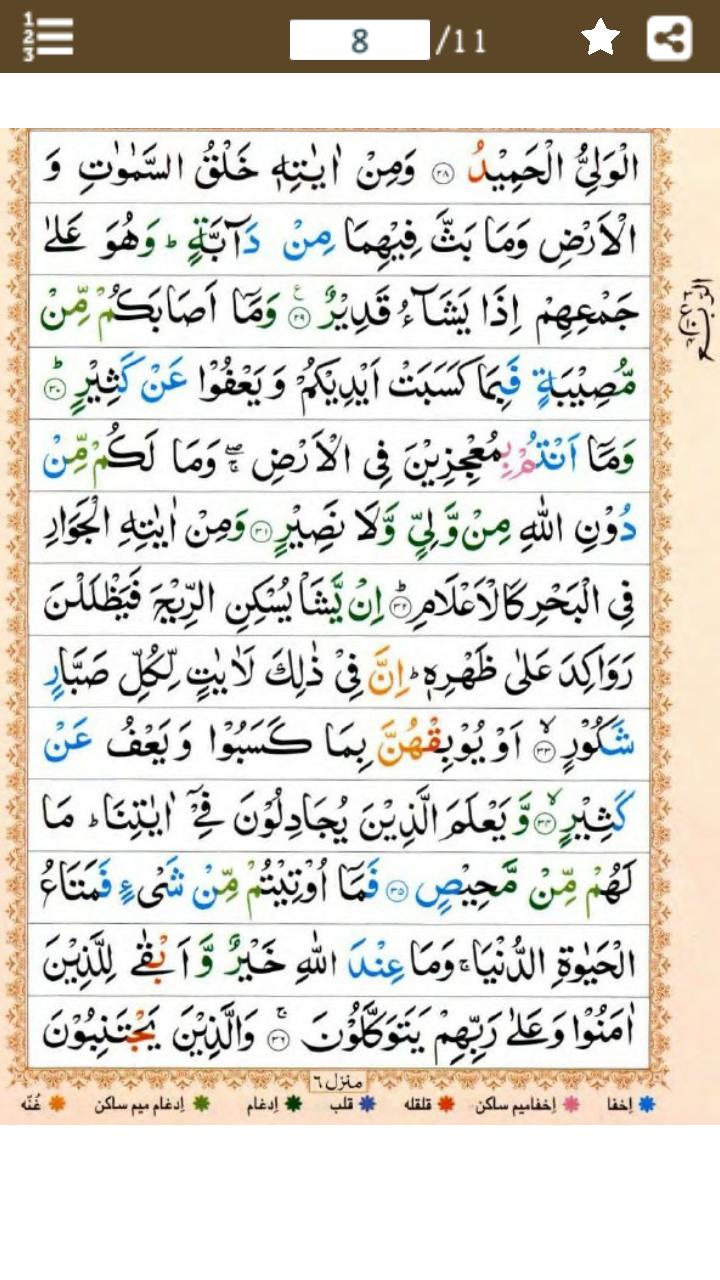 1
2
3
8 /11
الْوَلِىُّ الْحَمِيْدُ ۝۲۸ وَمِنْ اٰيٰتِهٖ خَلْقُ السَّمٰوٰتِ وَ
الْاَرْضِ وَمَا بَثَّ فِيْهِمَا مِنْ دَآبَّةٍ ؕ وَهُوَ عَلٰى
جَمْعِهِمْ اِذَا يَشَآءُ قَدِيْرٌ ۝۲۹ وَمَاۤ اَصَابَكُمْ مِّنْ
مُّصِيْبَةٍ فَبِمَا كَسَبَتْ اَيْدِيْكُمْ وَيَعْفُوْا عَنْ كَثِيْرٍ ؕ۝۳۰
وَمَاۤ اَنْتُمْ بِمُعْجِزِيْنَ فِى الْاَرْضِ ۖۚ وَمَا لَكُمْ مِّنْ
دُوْنِ اللّٰهِ مِنْ وَّلِىٍّ وَّلَا نَصِيْرٍ ۝۳۱ وَمِنْ اٰيٰتِهِ الْجَوَارِ
فِى الْبَحْرِ كَالْاَعْلَامِ ؕ۝۳۲ اِنْ يَّشَاْ يُسْكِنِ الرِّيْحَ فَيَظْلَلْنَ
رَوَاكِدَ عَلٰى ظَهْرِهٖ ؕ اِنَّ فِىْ ذٰلِكَ لَاٰيٰتٍ لِّكُلِّ صَبَّارٍ
شَكُوْرٍ ۙ۝۳۳ اَوْ يُوْبِقْهُنَّ بِمَا كَسَبُوْا وَيَعْفُ عَنْ
كَثِيْرٍ ۙ۝۳۴ وَّيَعْلَمَ الَّذِيْنَ يُجَادِلُوْنَ فِىْۤ اٰيٰتِنَا ؕ مَا
لَهُمْ مِّنْ مَّحِيْصٍ ۝۳۵ فَمَاۤ اُوْتِيْتُمْ مِّنْ شَىْءٍ فَمَتَاعُ
الْحَيٰوةِ الدُّنْيَا ۚ وَمَا عِنْدَ اللّٰهِ خَيْرٌ وَّاَبْقٰى لِلَّذِيْنَ
اٰمَنُوْا وَعَلٰى رَبِّهِمْ يَتَوَكَّلُوْنَ ۚ۝۳۶ وَالَّذِيْنَ يَجْتَنِبُوْنَ
منزل ۶
اِخفا اِخفامیم ساکن قلقله قلب اِدغام اِدغام میم ساکن غُنّه